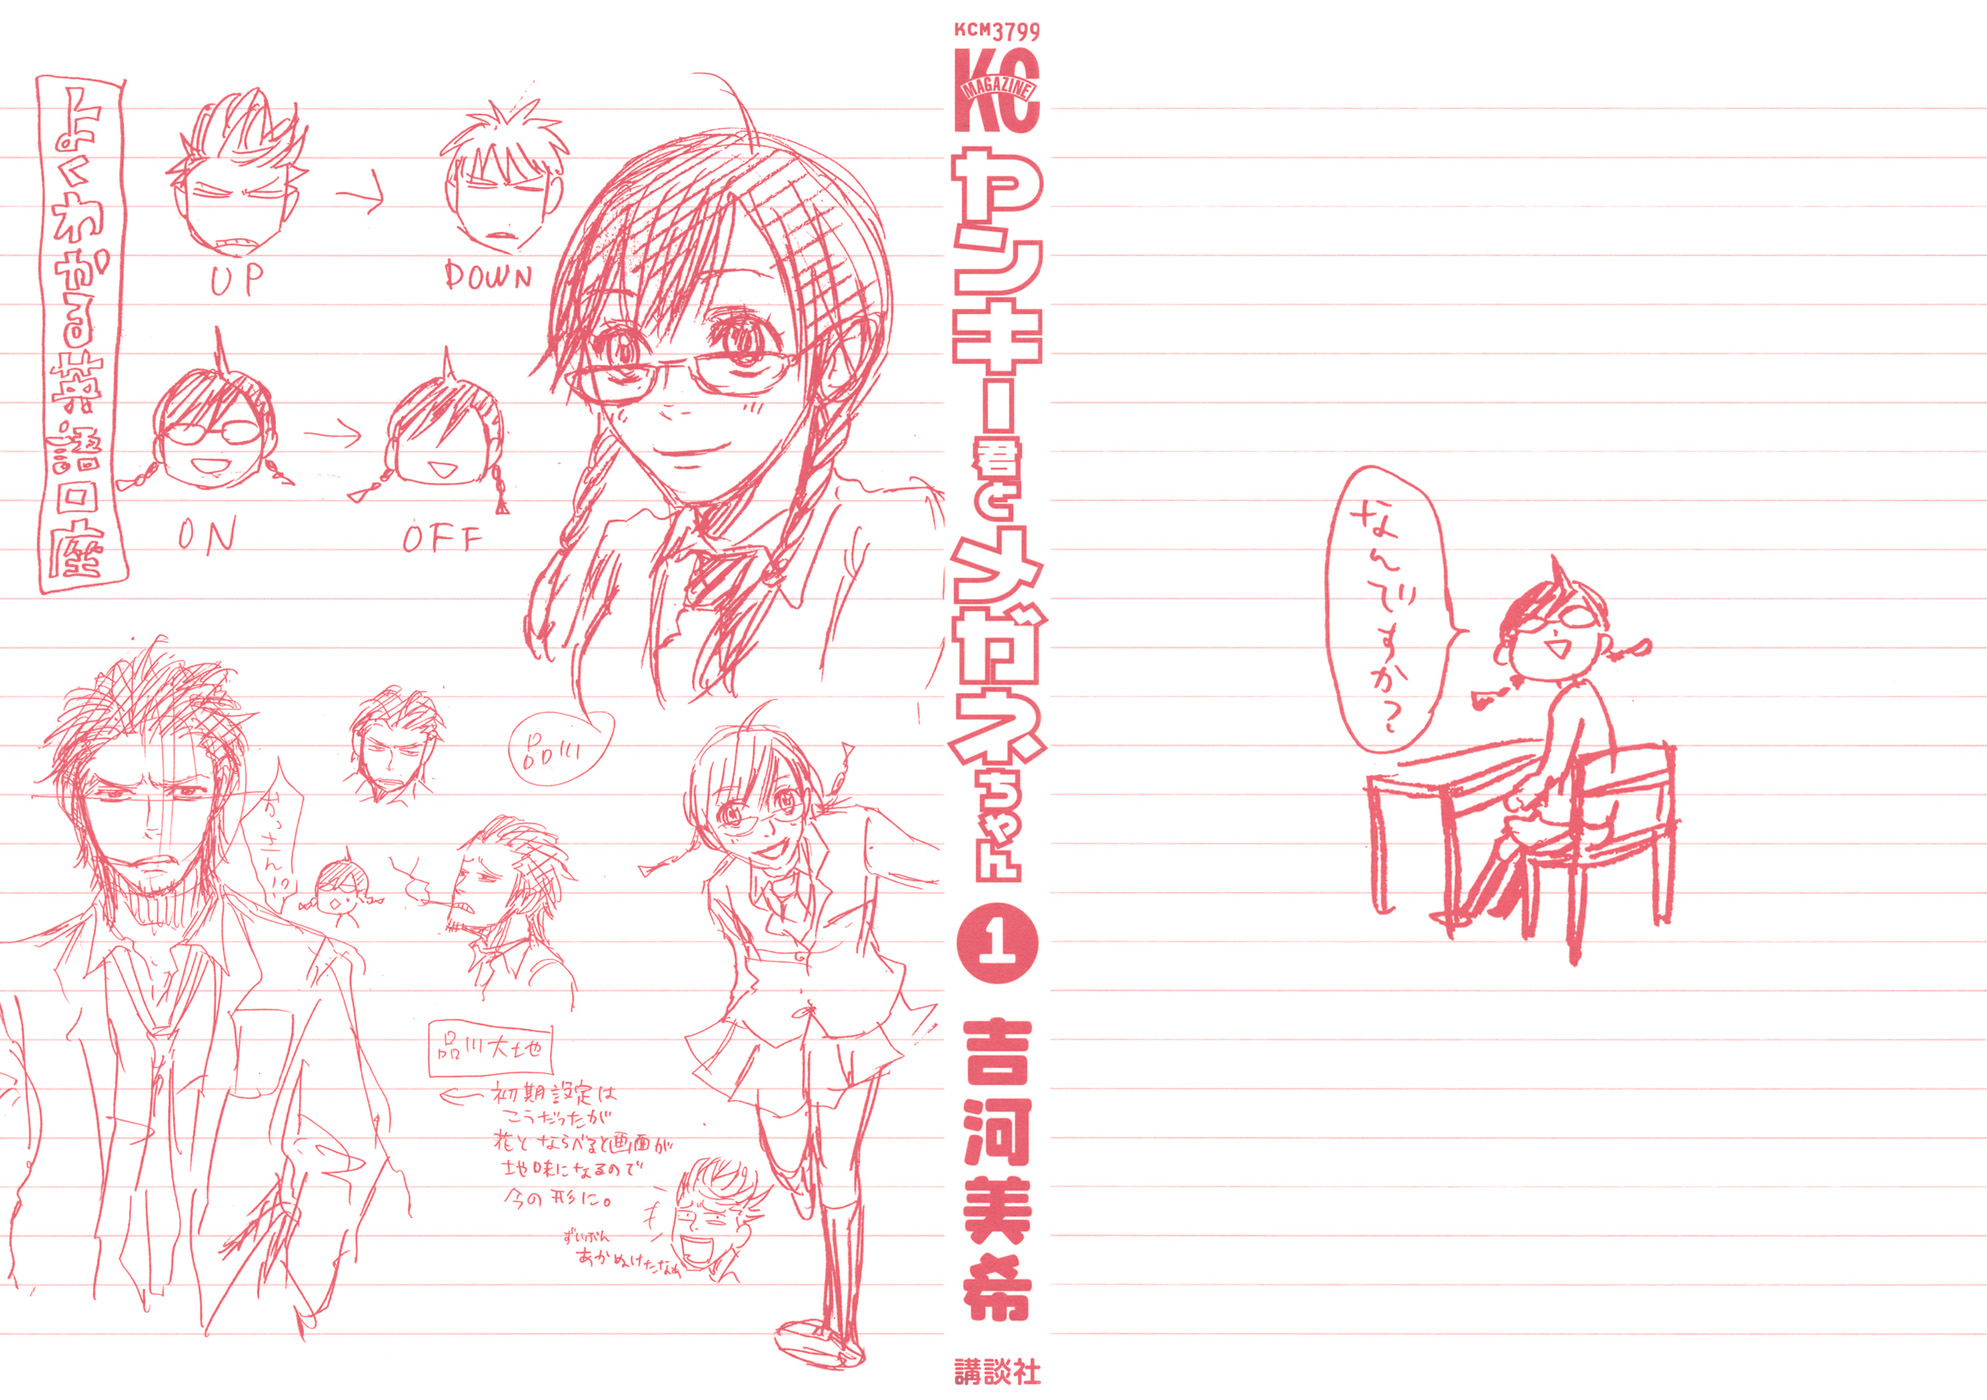 よくわかる英語口座
UP
DOWN
ON
OFF
品川
おっさん!?
品川大地
← 初期設定は
こうだったが
花とならべると画面が
地味になるので
今の形に。
ずいぶん
あかぬけたなぁ
KCM3799
KC
MAGAZINE
ヤンキー君とメガネちゃん
1
吉河美希
講談社
なんですか?